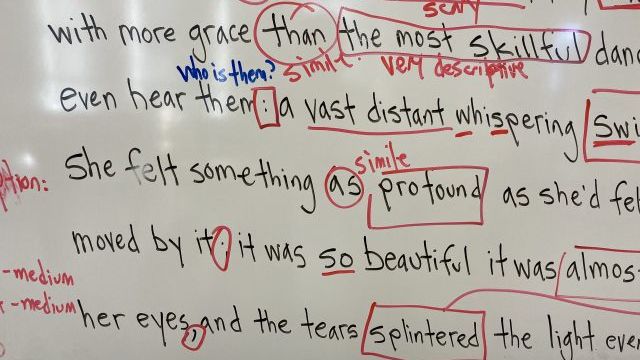 scary
with more grace than the most skillful danc
who is them? simile very descriptive
even hear them: a vast distant whispering swi
simile
ption: She felt something as profound as she'd fel
moved by it; it was so beautiful it was almos
-medium
-medium her eyes, and the tears splintered the light eve